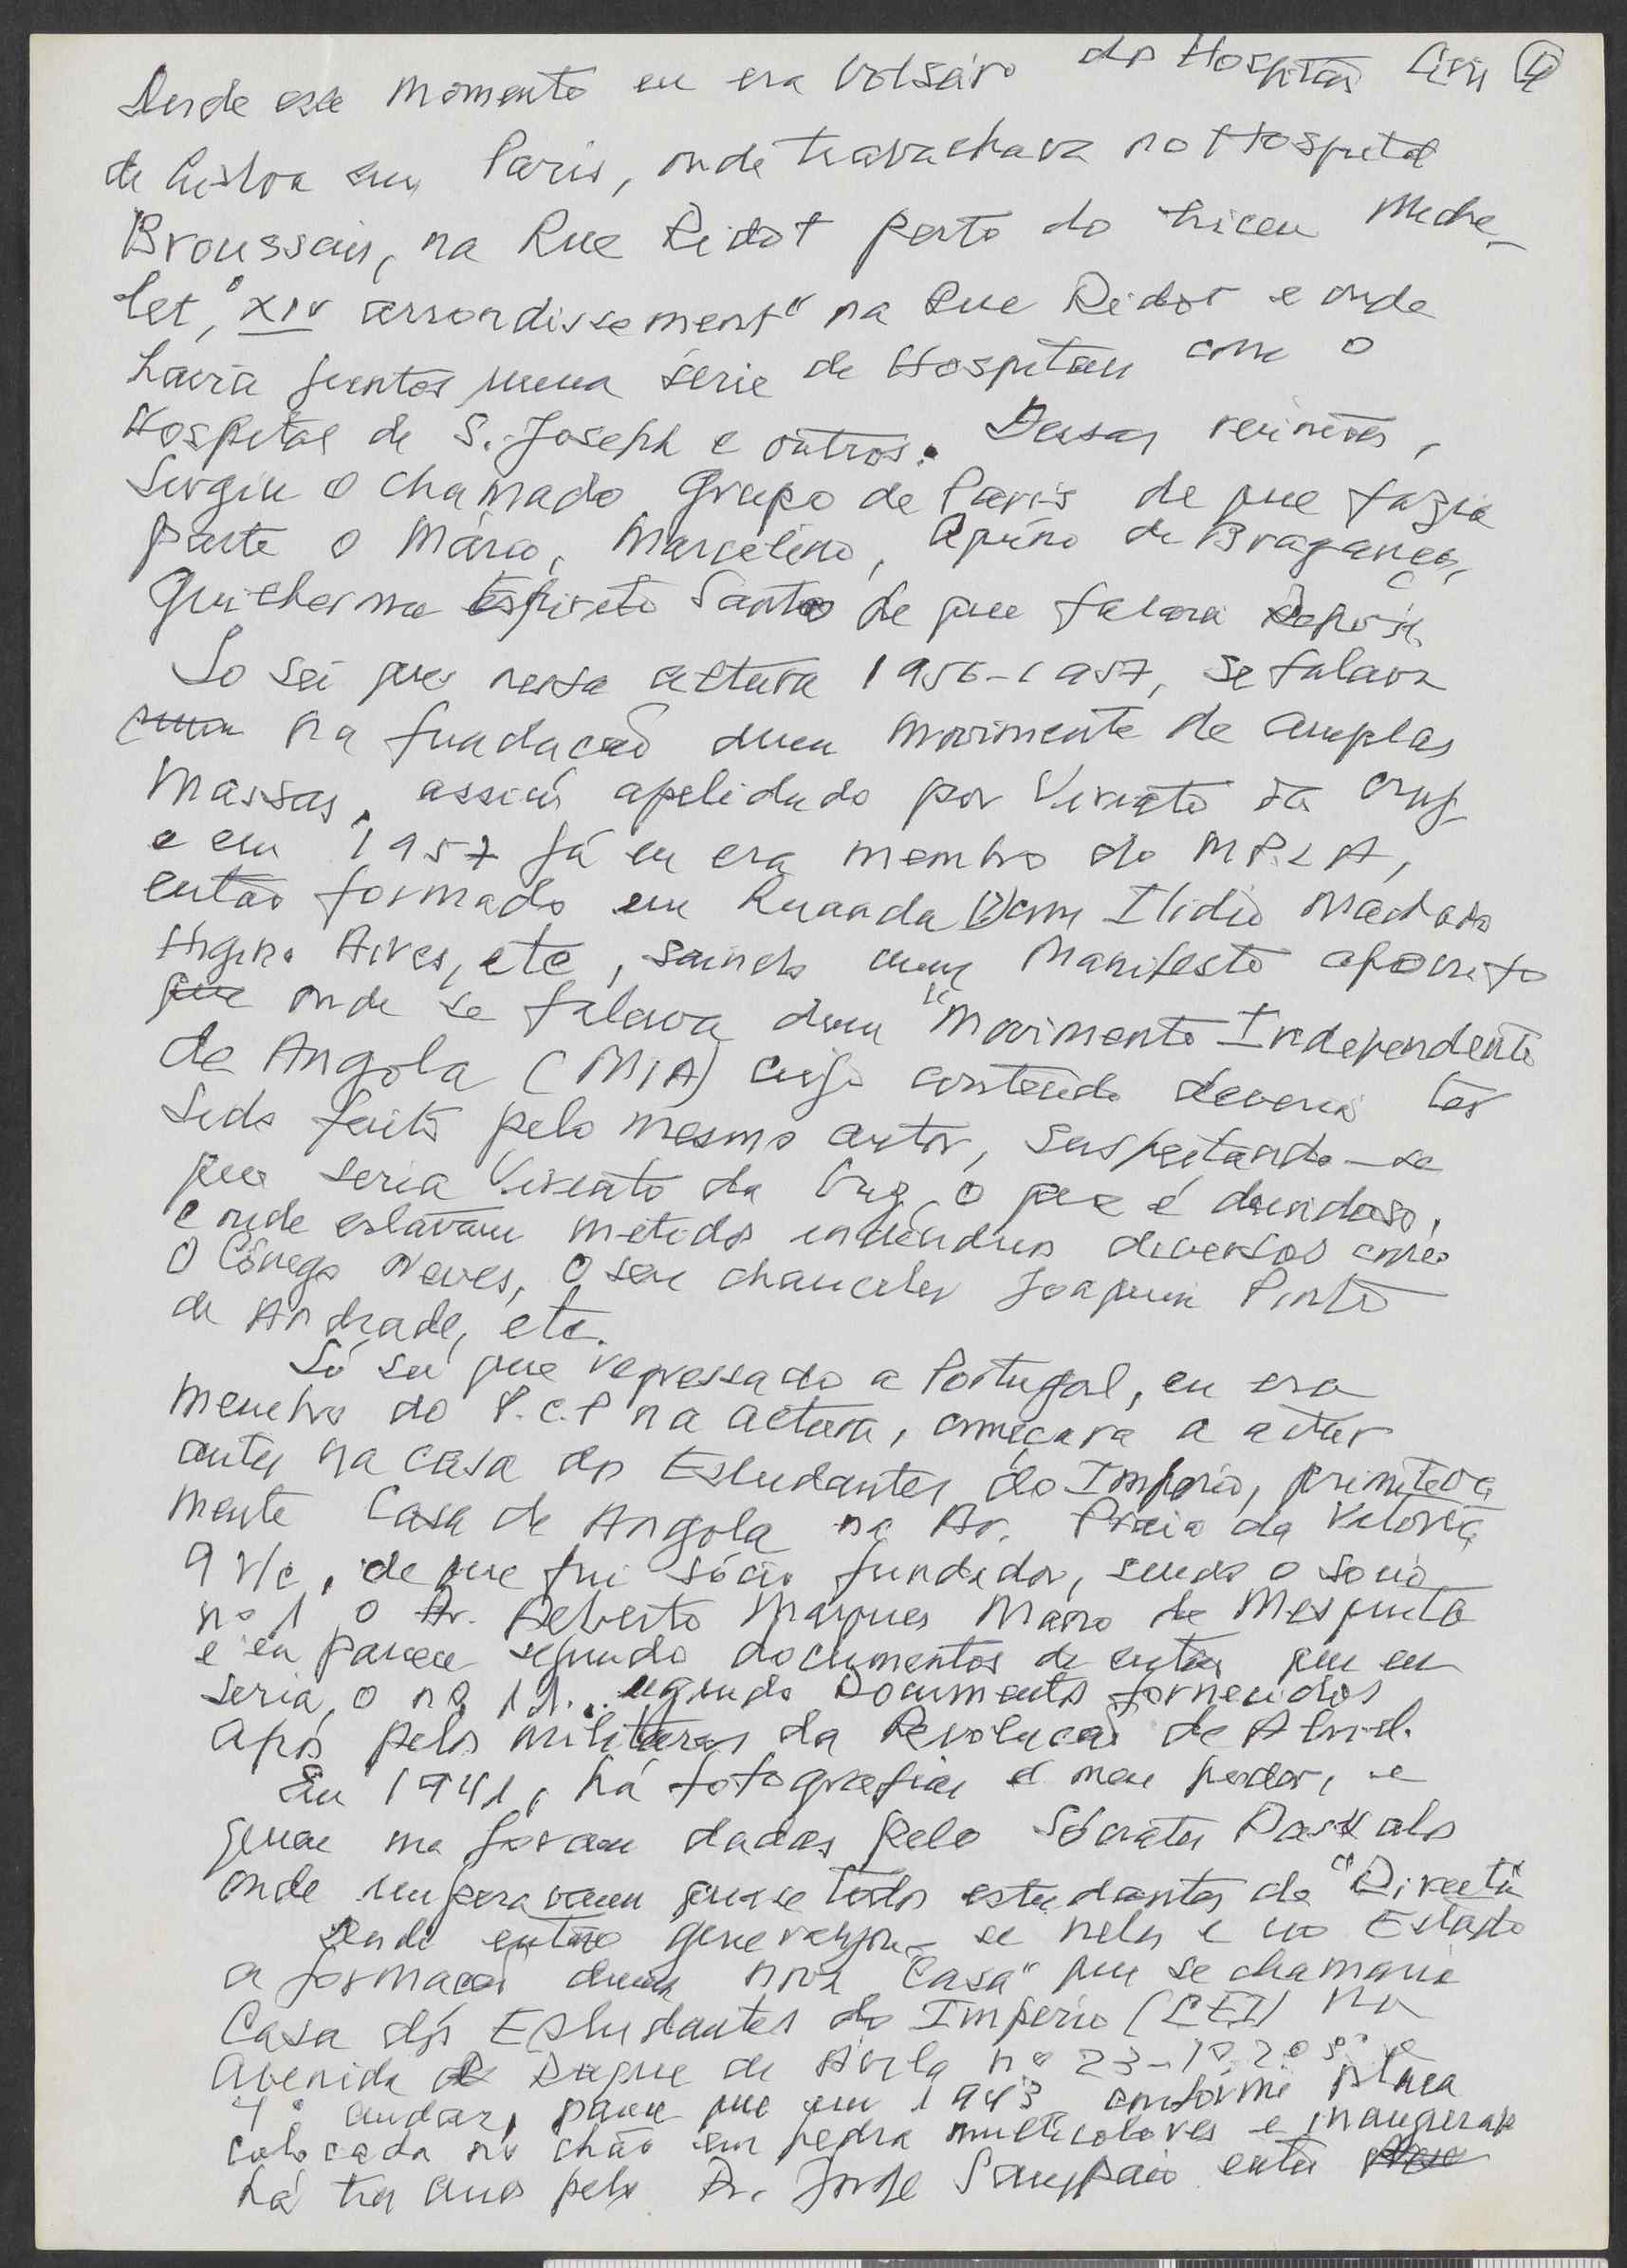 Desde esse momento eu era bolseiro dos Hospitais Civis 4
de Lisboa em Paris, onde trabalhava no Hospital
Broussais, na Rue Didot perto do Liceu Miche-
let, "XIV arrondissement" na Rue Didot e onde
havia juntos numa série de Hospitais como o
Hospital de S. Joseph e outros. Dessas reuniões,
surgiu o chamado Grupo de Paris de que fazia
parte o Mário, Marcelino, Aquino de Bragança,
Guilherme Espirito Santo de que falarei depois.
Só sei que nessa altura 1956-1957, se falava
na fundação dum movimento de amplas
massas, assim apelidado por Viriato da Cruz
e em 1957 já eu era membro do MPLA,
então formado em Luanda com Ilidio Machado
Higino Aires, etc, saindo um Manifesto apocrifo
que onde se falava dum "Movimento Independente
de Angola (MIA) cujo conteúdo deveria ter
sido feito pelo mesmo autor, suspeitando-se
que seria Viriato da Cruz, o que é duvidoso,
e onde estavam metidos individuos diversos como
o Cónego Neves, o seu chanceler Joaquim Pinto
de Andrade, etc.
Só sei que regressado a Portugal, eu era
membro do P.C.P na altura, começara a actuar
antes na casa dos Estudantes do Império, primitiva
mente Casa de Angola na Av. Praia da Vitória
9 r/c, de que fui sócio fundador, sendo o socio
nº 1 o Dr. Alberto Marques Mano de Mesquita
e eu parece segundo documentos de então que eu
seria o nº 11. segundo Documentos fornecidos
após pelos militares da Revolução de Abril.
Em 1941, há fotografias em meu poder, e
que me foram dadas pelo Sócrates Daskalos
onde imperavam quase todos estudantes da "Direita"
Desde então generalizou-se neles e no Estado
a formação duma nova "Casa" que se chamaria
Casa dos Estudantes do Império (CEI) na
Avenida Duque de Ávila nº 23-1º 2º 3º e
4º andar, parece que em 1943 conforme placa
colocada no chão em pedra multicolores e inaugurada
há tres anos pelo Dr. Jorge Sampaio então